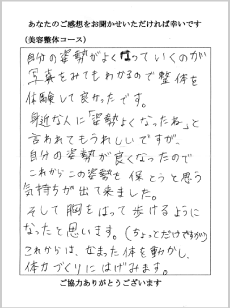 あなたのご感想をお聞かせいただければ幸いです
(美容整体コース)
自分の姿勢がよくなっていくのが
写真をみてもわかるので整体を
体験して良かったです。
身近な人に「姿勢よくなったね」と
言われてもうれしいですが、
自分の姿勢が良くなったので
これからこの姿勢を保とうと思う
気持ちが出て来ました。
そして胸をはって歩けるように
なったと思います。(ちょっとだけですが)
これからは、なまった体を動かし、
体力づくりにはげみます。
ご協力ありがとうございます